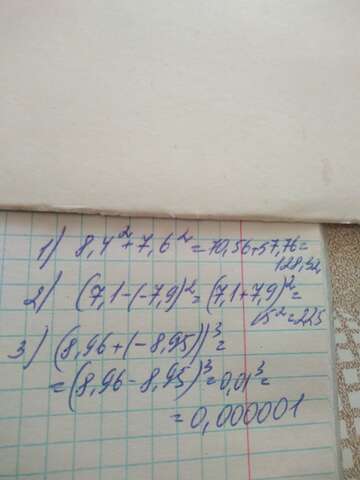 1) 8,4²+7,6²=70,56+57,76=
128,32
2) (7,1-(-7,9)²=(7,1+7,9)²=
15²=225
3) (8,96+(-8,95))³=
=(8,96-8,95)³=0,01³=
=0,000001